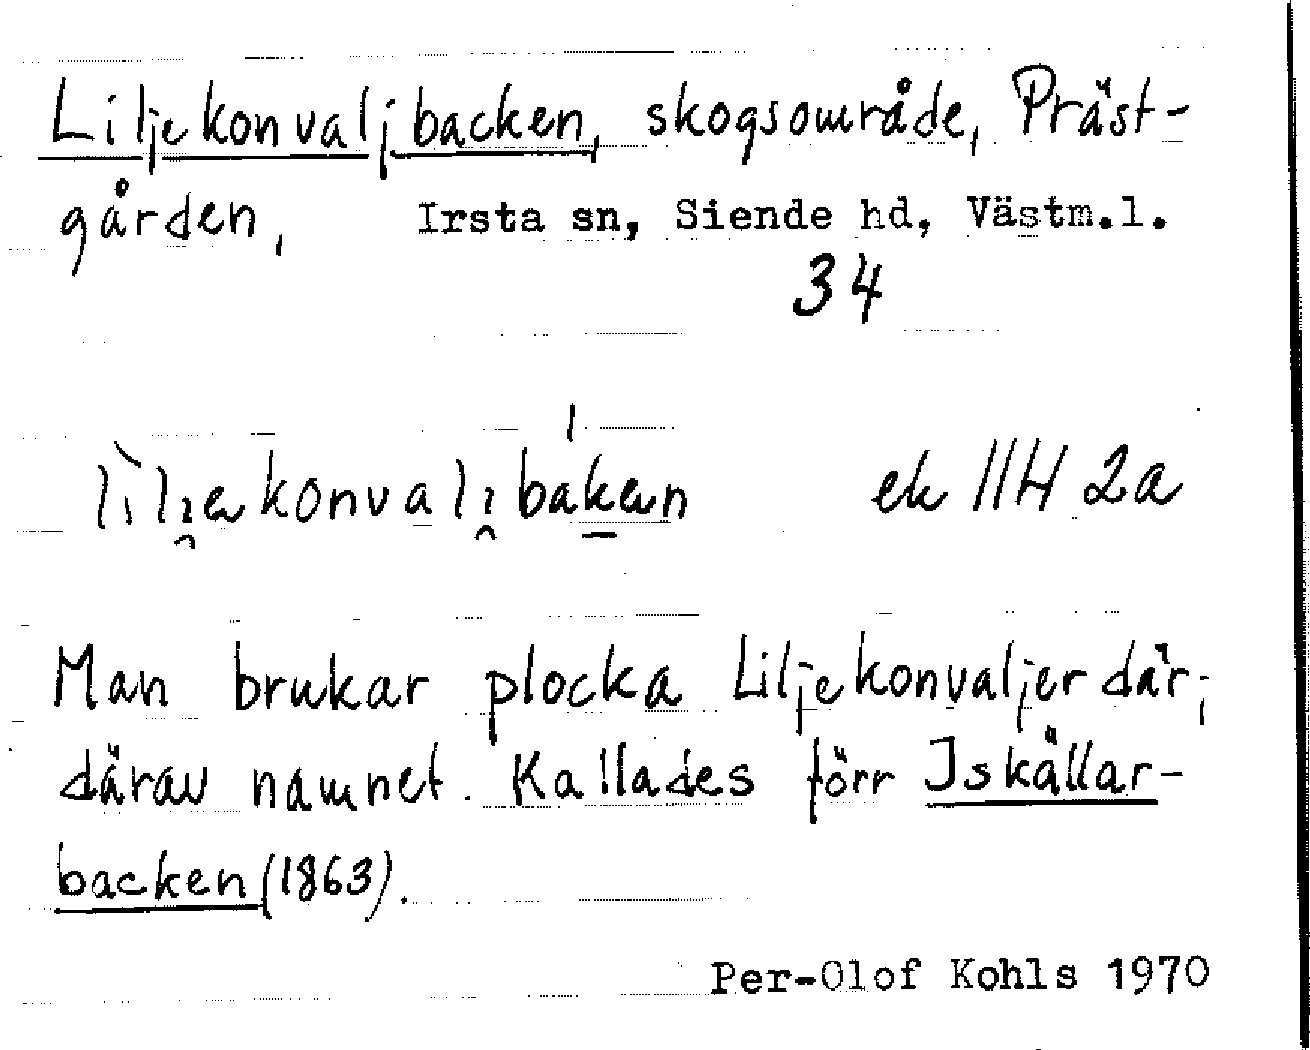 Liljekonvaljbacken, skogsområde, Präst-
gården, Irsta sn, Siende hd, Västm.l.
34
lìli̯ekonvali̯baken ek 11H 2a
Man brukar plocka liljekonvaljer där,
därav namnet. Kallades förr Iskällar-
backen (1863).
Per-Olof Kohls 1970